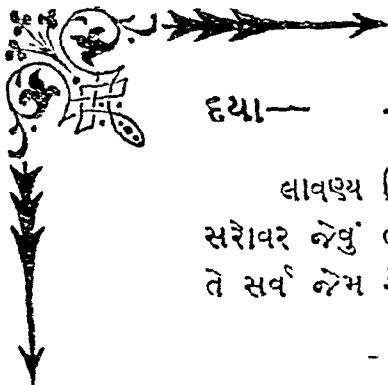 દયા—
લાવણ્ય
સરોવર જેવું
તે સર્વ જેમ